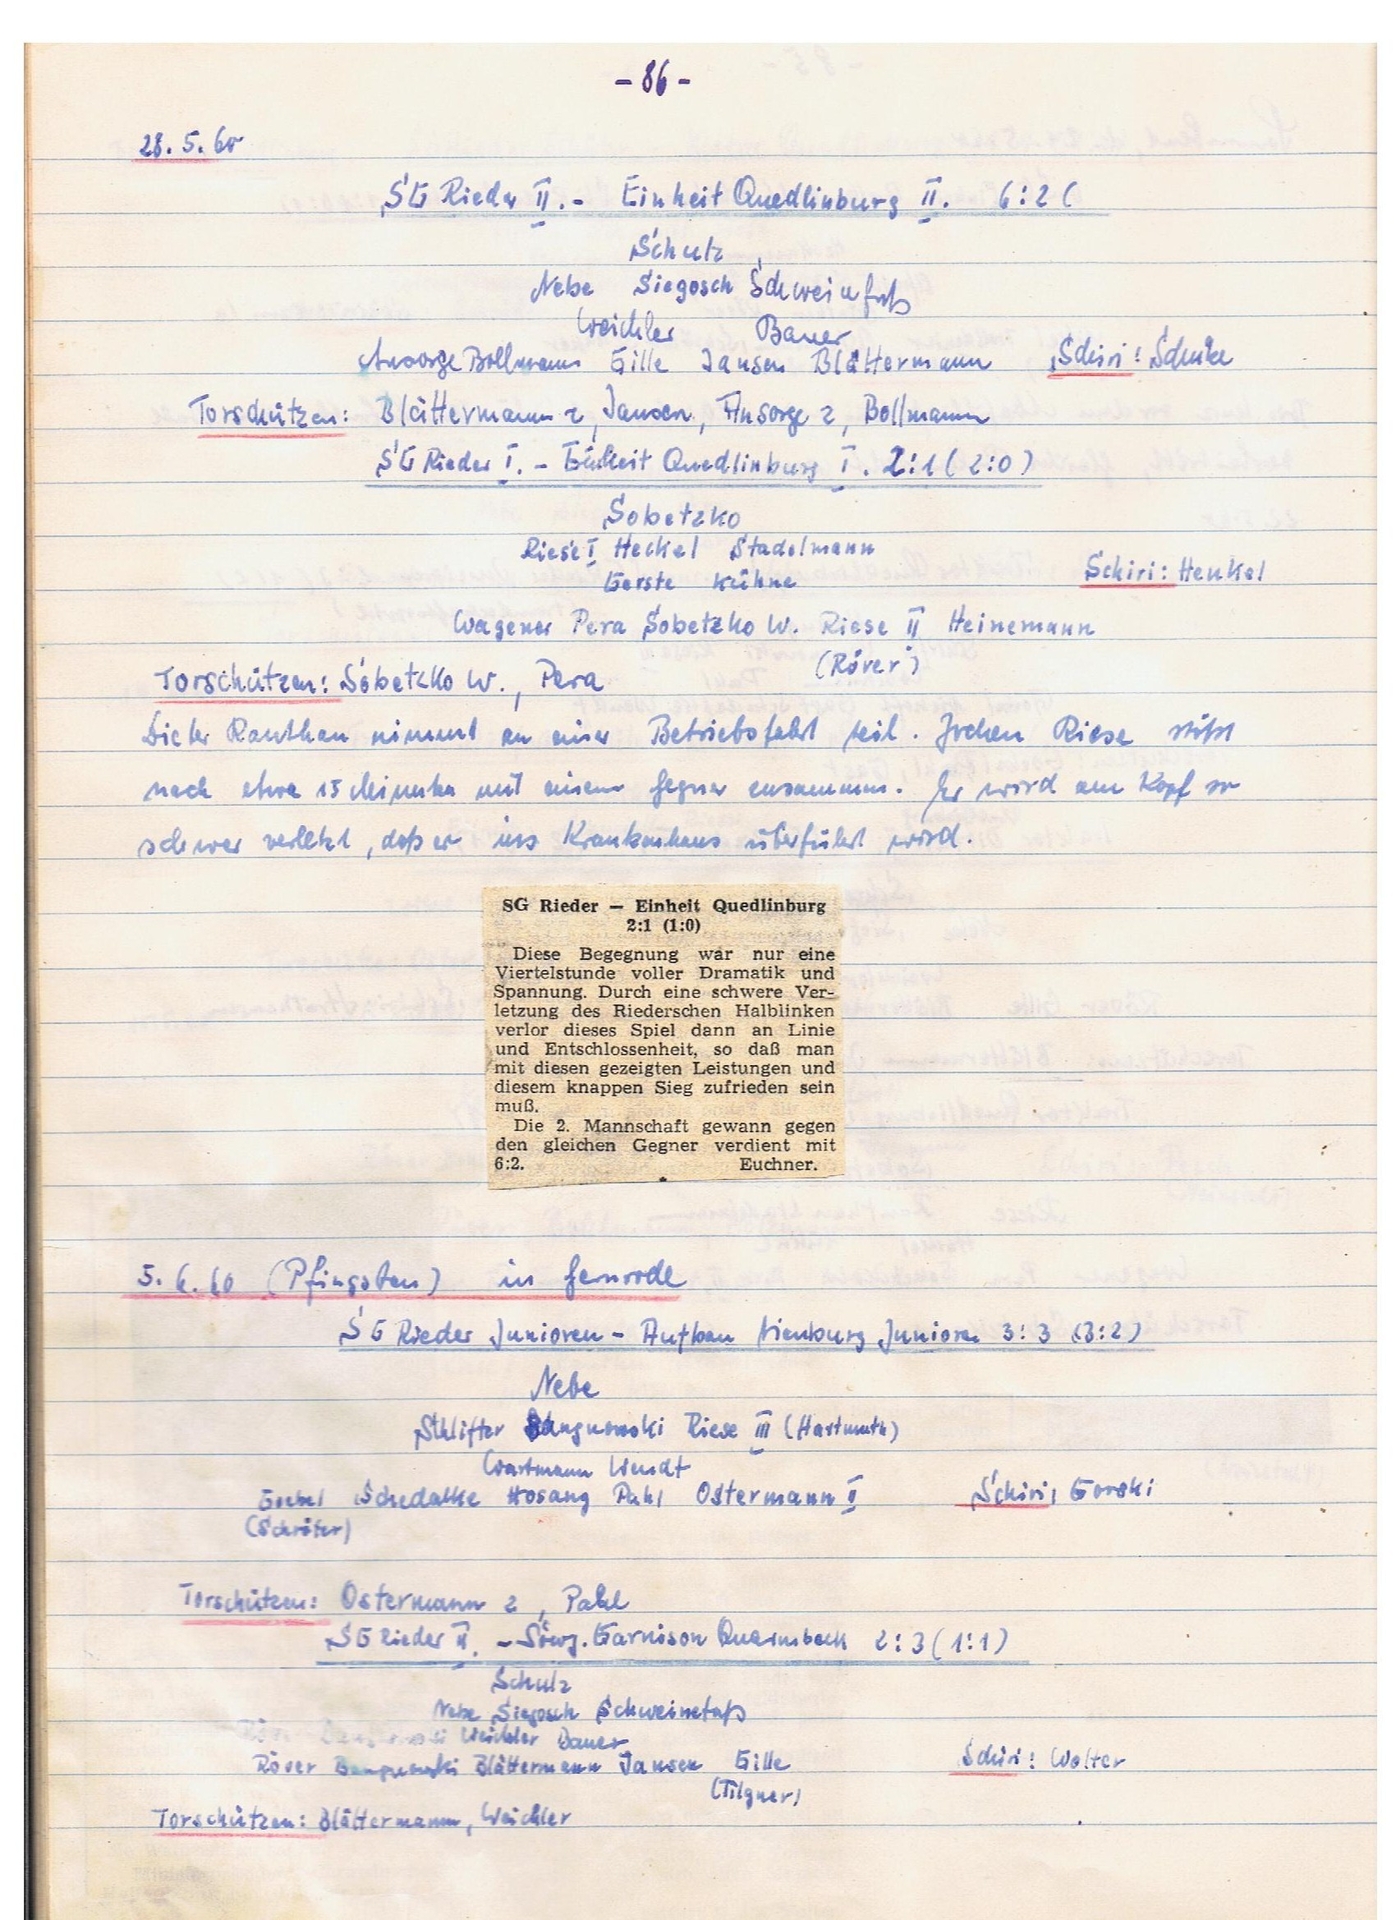 - 86 -
28. 5. 60
SG Rieder II. - Einheit Quedlinburg II. 6:2 (
Schulz
Nebe Siegosch Schweinefuß
Weichler Bauer
Ansorge Bollmann Gille Jansen Blättermann Schiri:
Torschützen: Blättermann 2, Jansen, Ansorge 2, Bollmann
SG Rieder I. - Einheit Quedlinburg I. 2:1 (2:0)
Sobetzko
Riese I Heckel Stadelmann
Gerste Kühne Schiri: Henkel
Wagener Pera Sobetzko W. Riese II Heinemann
(Röver)
Torschützen: Sobetzko W., Pera
Dieter Rauthan nimmt an einer Betriebsfahrt teil. Jochen Riese stößt
nach etwa 15 Minuten mit einem Gegner zusammen. Er wird am Kopf so
schwer verletzt, daß er ins Krankenhaus überführt wird.
SG Rieder — Einheit Quedlinburg
2:1 (1:0)
Diese Begegnung war nur eine
Viertelstunde voller Dramatik und
Spannung. Durch eine schwere Ver-
letzung des Riederschen Halblinken
verlor dieses Spiel dann an Linie
und Entschlossenheit, so daß man
mit diesen gezeigten Leistungen und
diesem knappen Sieg zufrieden sein
muß.
Die 2. Mannschaft gewann gegen
den gleichen Gegner verdient mit
6:2. Euchner.
5. 6. 60 (Pfingsten) in Gernrode
SG Rieder Junioren - Aufbau Nienburg Junioren 3:3 (3:2)
Nebe
Schlifter Riese III (Hartmuth)
Wartmann Wendt
Goebel Schedalke Hosang Pahl Ostermann I Schiri: Gorski
(Schröter)
Torschützen: Ostermann 2, Pahl
SG Rieder II. - Sowj. Garnison Quarmbeck 2:3 (1:1)
Schulz
Nebe Siegosch Schweinefuß
Weichler Bauer
Röver Blättermann Jansen Gille Schiri: Wolter
(Tilgner)
Torschützen: Blättermann, Weichler